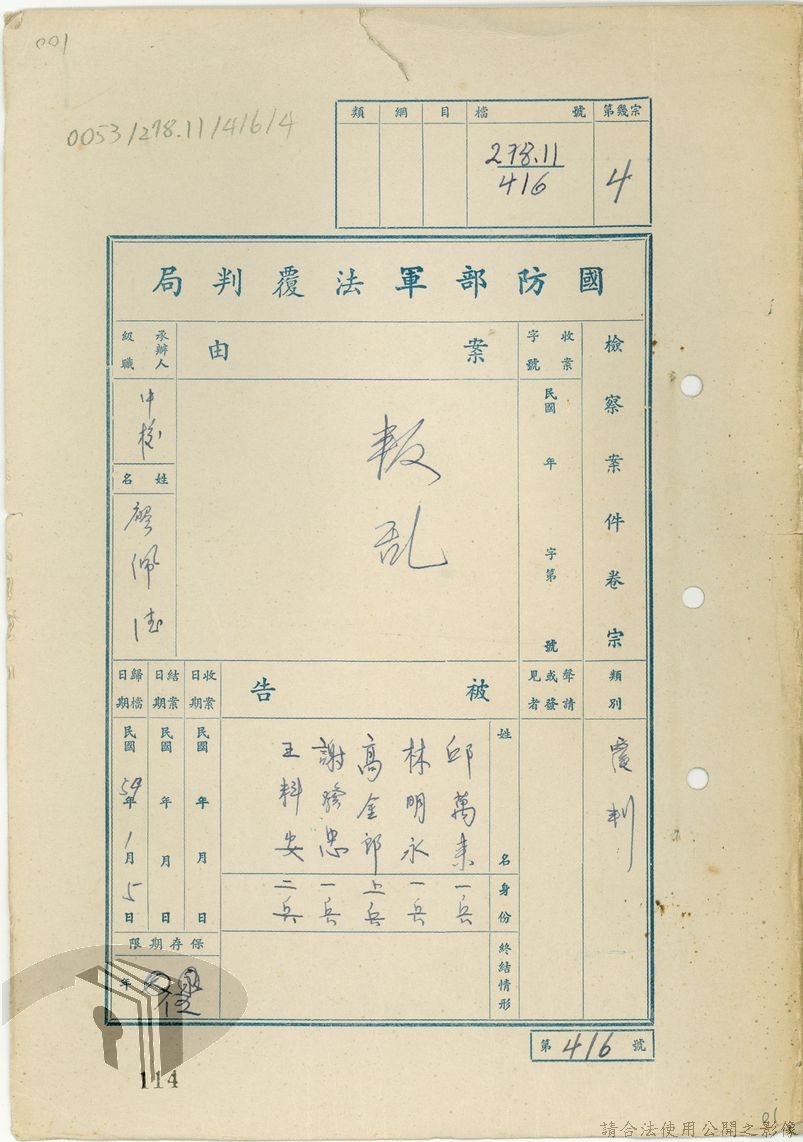 001
0053/278.11/416/4
類 綱 目 檔號 第幾宗
278.11
416
4
國防部軍法覆判局
檢察案件卷宗
類別
覆判
收案字號
民國 年 字第 號
聲請或發見者
案由
叛乱
承辦人級職
中校
姓名
佩
被告
姓名
邱萬來
林明永
高金郎
謝發忠
王科安
身份
一兵
一兵
上兵
一兵
二兵
終結情形
收案日期
民國 年 月 日
結案日期
民國 年 月 日
歸檔日期
民國54年1月5日
保存期限
年
第416號
114
請合法使用公開之影像